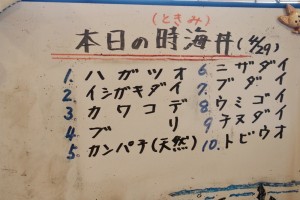 (ときみ)
本日の時海丼(4/29)
1. ハガツオ
2. イシガキダイ
3. カワコデ
4. ブリ
5. カンパチ(天然)
6. ニザダイ
7. ブダイ
8. ウミゴイ
9. チヌダイ
10. トビウオ